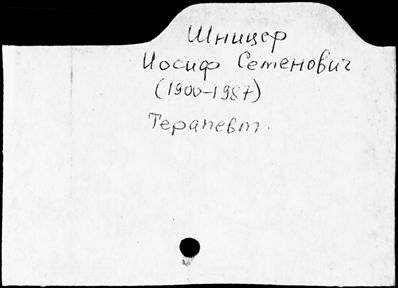 Шницер
Иосиф Семенович
(1900-1987)
Терапевт.